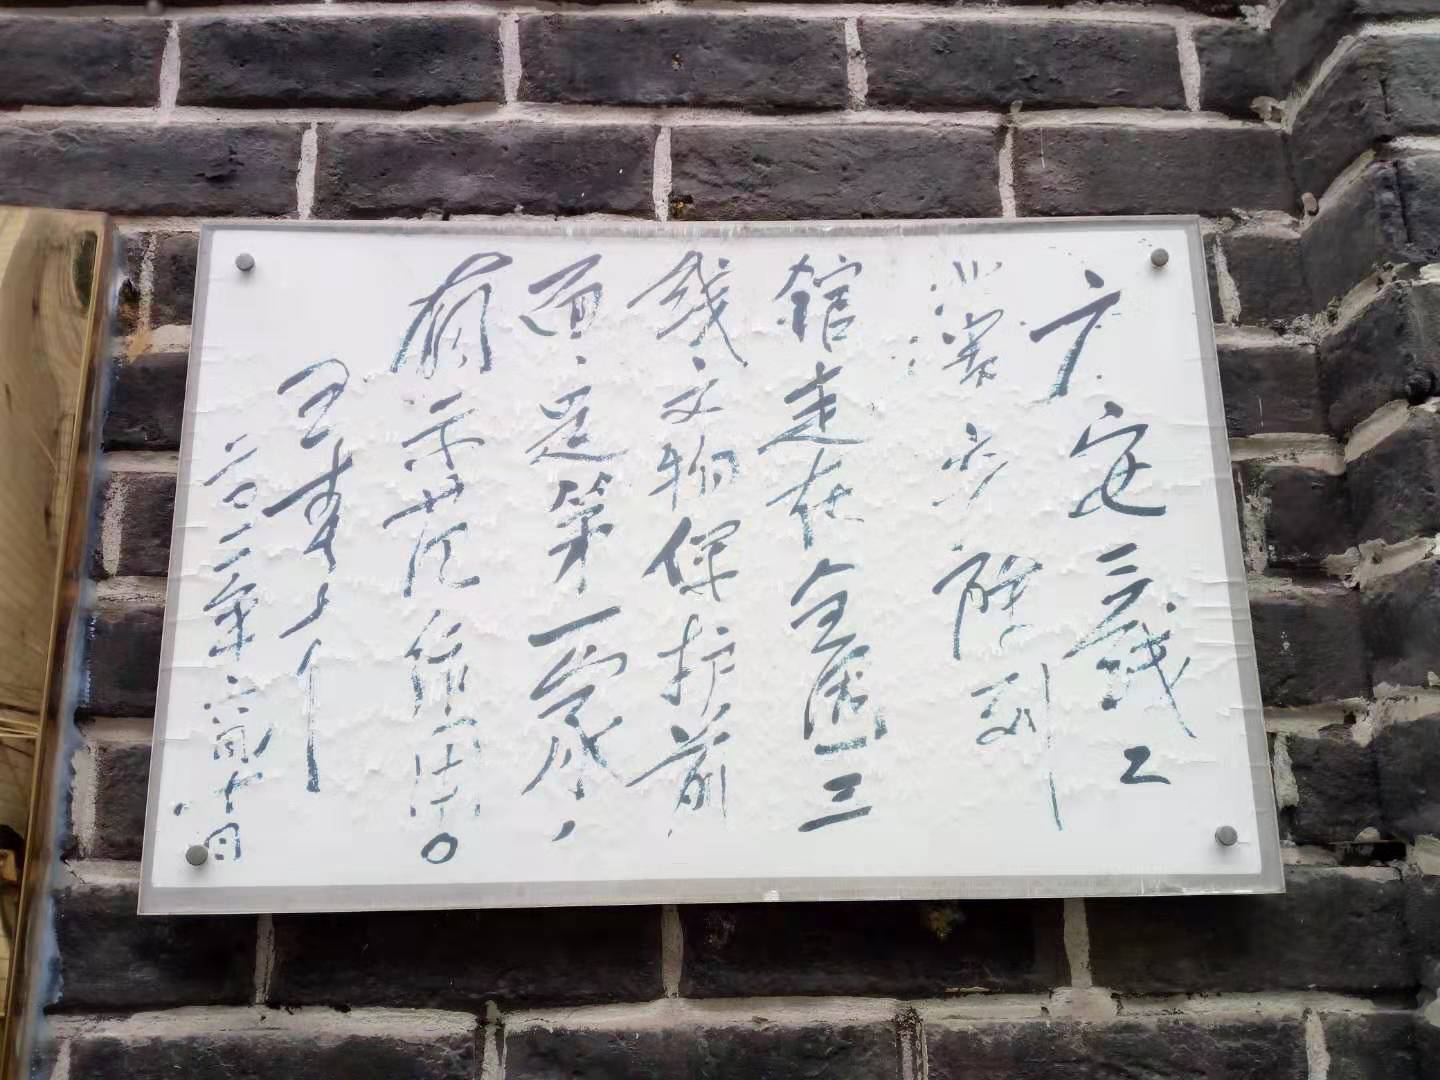 广安三线工
业遗产陈列
馆走在全国三
线文物保护前
面，是第一家，
有示范作用。
王春才
二〇二一年六月十日